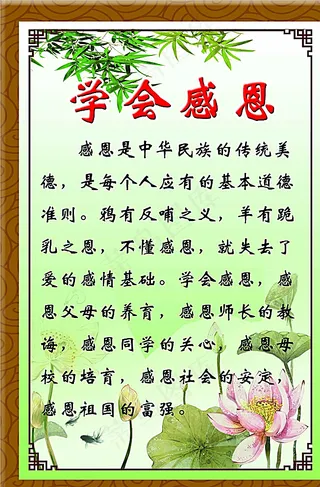 学会感恩
感恩是中华民族的传统美
德，是每个人应有的基本道德
准则。鸦有反哺之义，羊有跪
乳之恩，不懂感恩，就失去了
爱的感情基础。学会感恩，感
恩父母的养育，感恩师长的教
诲，感恩同学的关心，感恩母
校的培育，感恩社会的安定，
感恩祖国的富强。